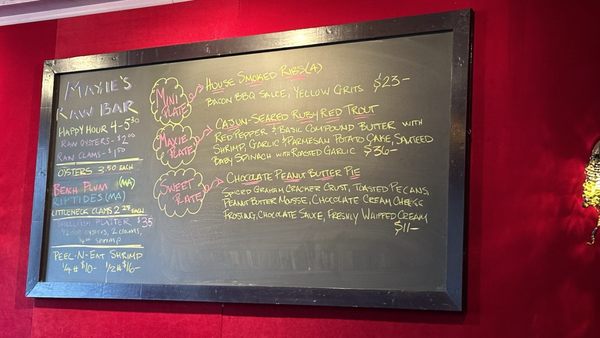 MAXIE'S
RAW BAR
HAPPY HOUR 4-5:30
RAW OYSTERS - $2.00
RAW CLAMS - $1.50
OYSTERS 3.50 EACH
BEACH PLUM (MA)
RIPTIDES (MA)
LITTLENECK CLAMS 2.25 EACH
PLATTER $35
PEEL-N-EAT SHRIMP
1/4 # $10- 1/2 # $16-
MINI PLATE
HOUSE SMOKED RIBS (4)
BACON BBQ SAUCE, YELLOW GRITS $23-
MAXIE PLATE
CAJUN-SEARED RUBY RED TROUT
RED PEPPER & BASIC COMPOUND BUTTER WITH
SHRIMP, GARLIC & PARMESAN POTATO CAKE, SAUTEED
BABY SPINACH WITH ROASTED GARLIC $36-
SWEET PLATE
CHOCOLATE PEANUT BUTTER PIE
SPICED GRAHAM CRACKER CRUST, TOASTED PECANS,
PEANUT BUTTER MOUSSE, CHOCOLATE CREAM CHEESE
FROSTING, CHOCOLATE SAUCE, FRESHLY WHIPPED CREAM
$11-